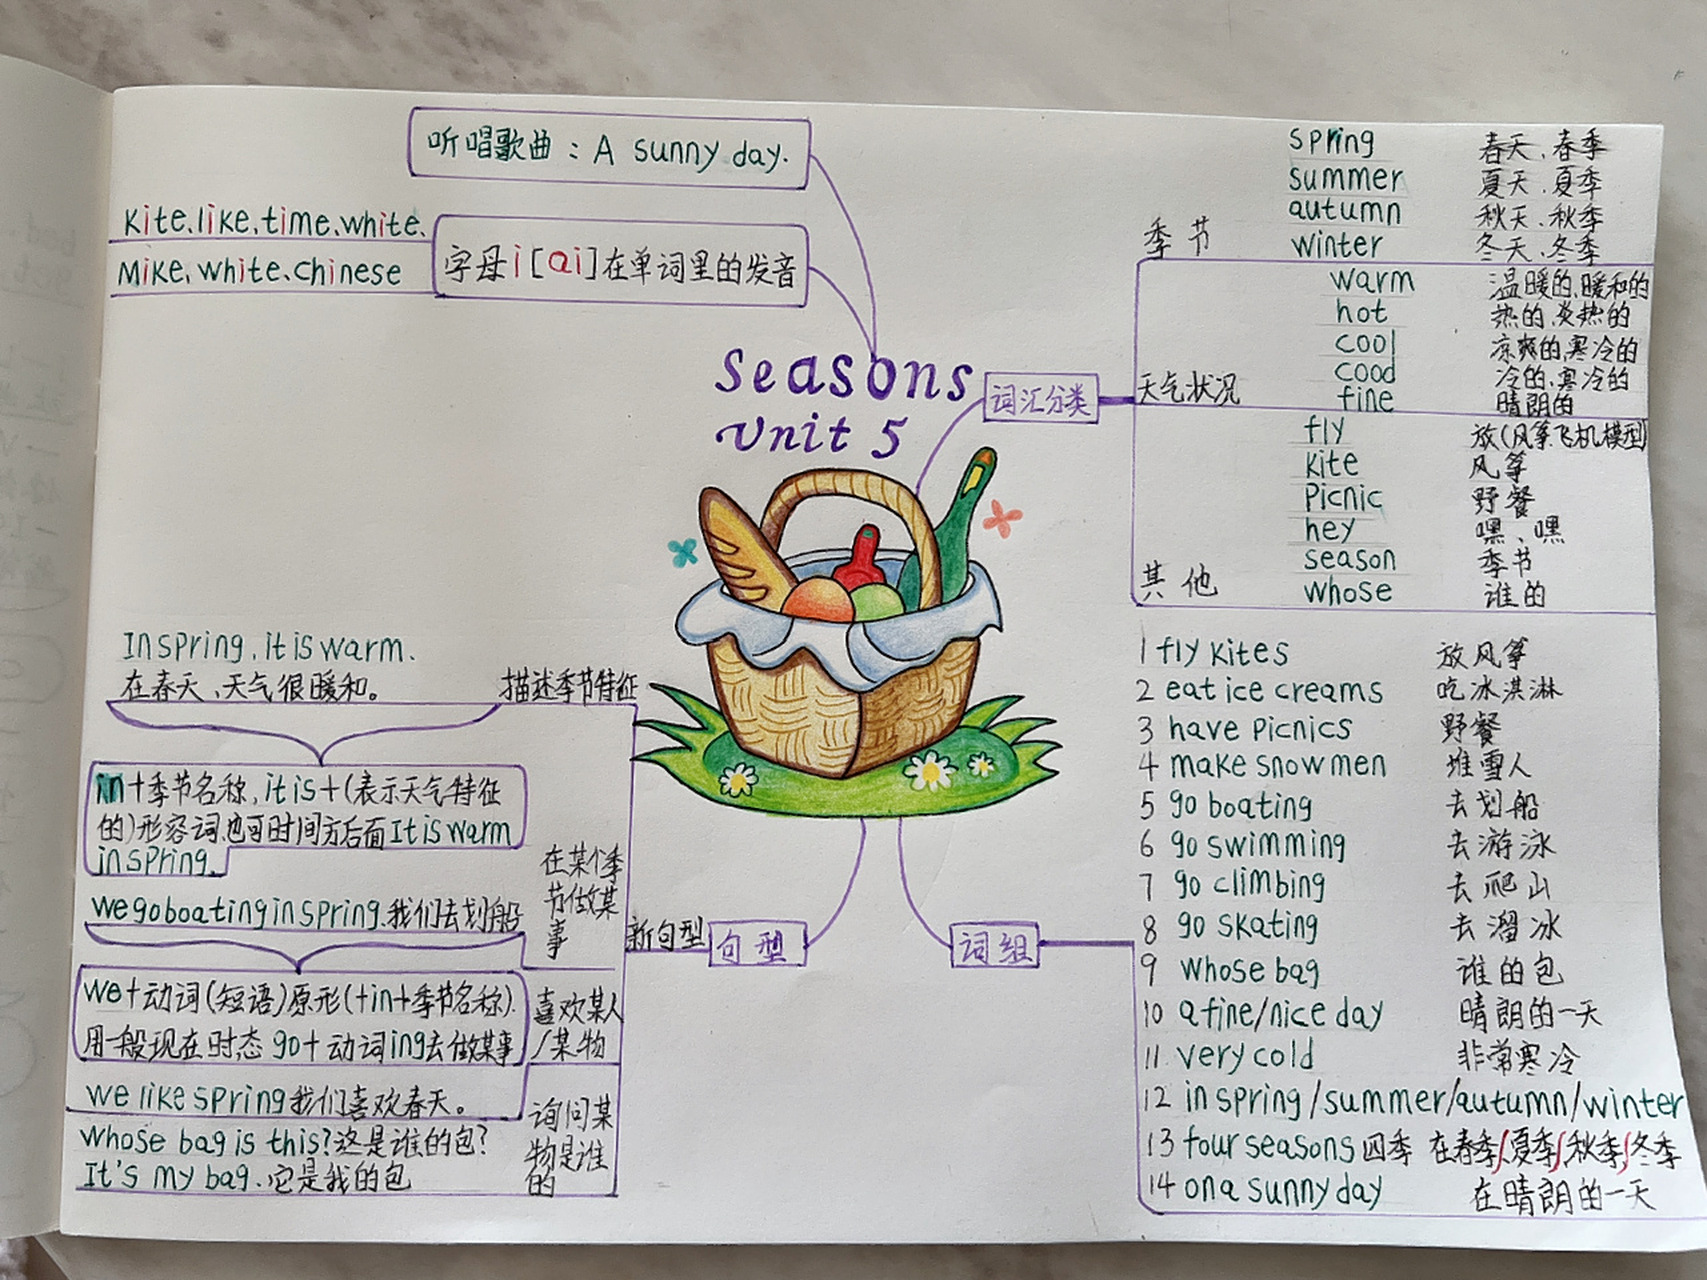 听唱歌曲：A sunny day.
kite、like、time、white、
Mike、white、chinese
字母i[ai]在单词里的发音
Seasons
Unit 5
词汇分类
季节
spring 春天、春季
summer 夏天、夏季
autumn 秋天、秋季
winter 冬天、冬季
天气状况
warm 温暖的、暖和的
hot 热的、炎热的
cool 凉爽的,寒冷的
cood 冷的、寒冷的
fine 晴朗的
其他
fly 放(风筝飞机模型)
kite 风筝
Picnic 野餐
hey 嘿、嘿
season 季节
whose 谁的
词组
1 fly kites 放风筝
2 eat ice creams 吃冰淇淋
3 have Picnics 野餐
4 make snowmen 堆雪人
5 go boating 去划船
6 go swimming 去游泳
7 go climbing 去爬山
8 go skating 去溜冰
9 whose bag 谁的包
10 a fine/nice day 晴朗的一天
11 very cold 非常寒冷
12 in spring/summer/autumn/winter
13 four seasons 四季 在春季/夏季/秋季/冬季
14 on a sunny day 在晴朗的一天
句型
新句型
描述季节特征
In spring, it is warm.
在春天、天气很暖和。
in+季节名称,it is+(表示天气特征
的)形容词.也可时间方后面It is warm
in spring.
在某个季
节做某
事
we go boating in spring.我们去划船
we+动词(短语)原形(+in+季节名称).
用一般现在时态 go+动词ing去做某事
喜欢某人
/某物
we like spring我们喜欢春天。
询问某
物是谁
的
whose bag is this?这是谁的包?
It's my bag.它是我的包